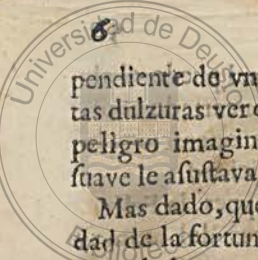 6
Universidad de Deusto
pendiente de vn
tas dulzuras ver
peligro imagin
ſuave le aſuſtava
Mas dado, que
dad de la fortun